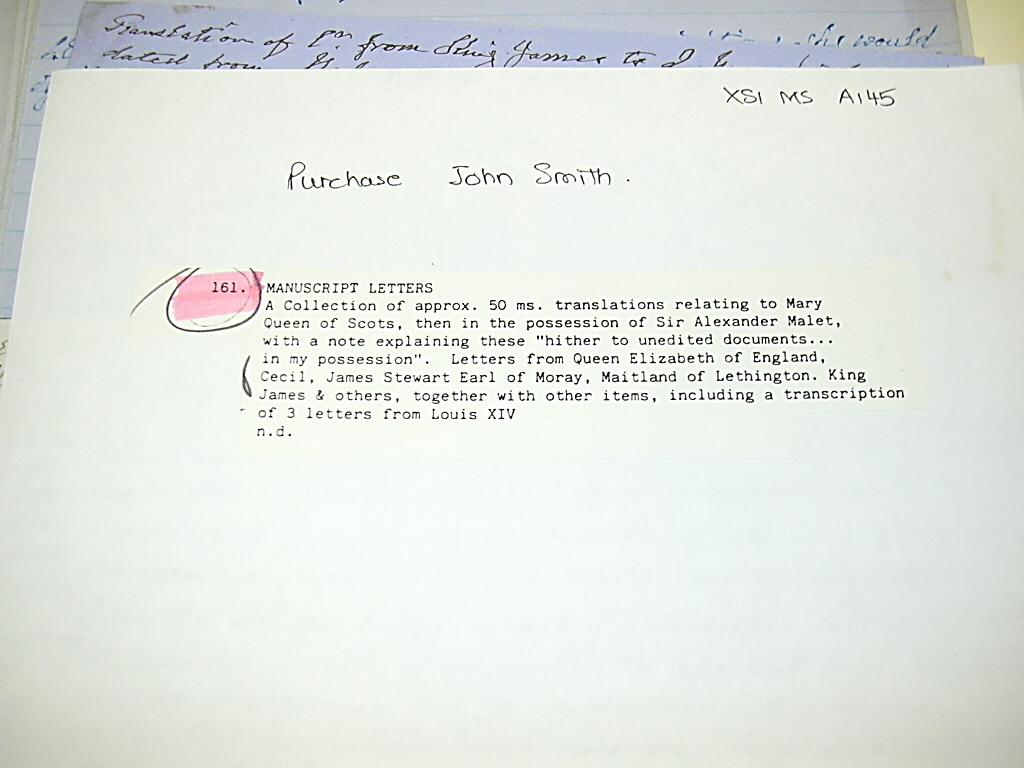 Translation of from King James to
dated from
she would
XSI MS A145
Purchase John Smith.
161. MANUSCRIPT LETTERS
A Collection of approx. 50 ms. translations relating to Mary
Queen of Scots, then in the possession of Sir Alexander Malet,
with a note explaining these "hither to unedited documents...
in my possession". Letters from Queen Elizabeth of England,
Cecil, James Stewart Earl of Moray, Maitland of Lethington. King
James & others, together with other items, including a transcription
of 3 letters from Louis XIV
n.d.